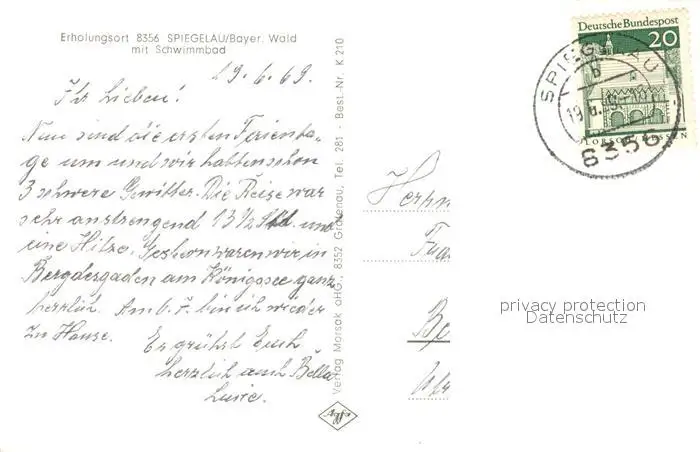 Erholungsort 8356 SPIEGELAU/Bayer. Wald
mit Schwimmbad
19.6.69.
Ihr Lieben!
Nun sind die ersten Ferienta-
ge um und wir habben schon
3 schwere Gewitter. Die Reise war
sehr anstrengend 13½ Std. und
eine Hitze. Gestern waren wir in
Bergdesgaden am Königssee ganz
herrlich. Am 6.7. bin ich wieder
zu Hause.
Es grüßt Euch
herzlich auch Bella
Verlag Morsak oHG., 8352 Grafenau, Tel. 281 - Best.-Nr. K 210
Agfa
Deutsche Bundespost
20
LORSCH/HESSEN
SPIEGELAU
b
8356
Herrn
privacy protection
Datenschutz